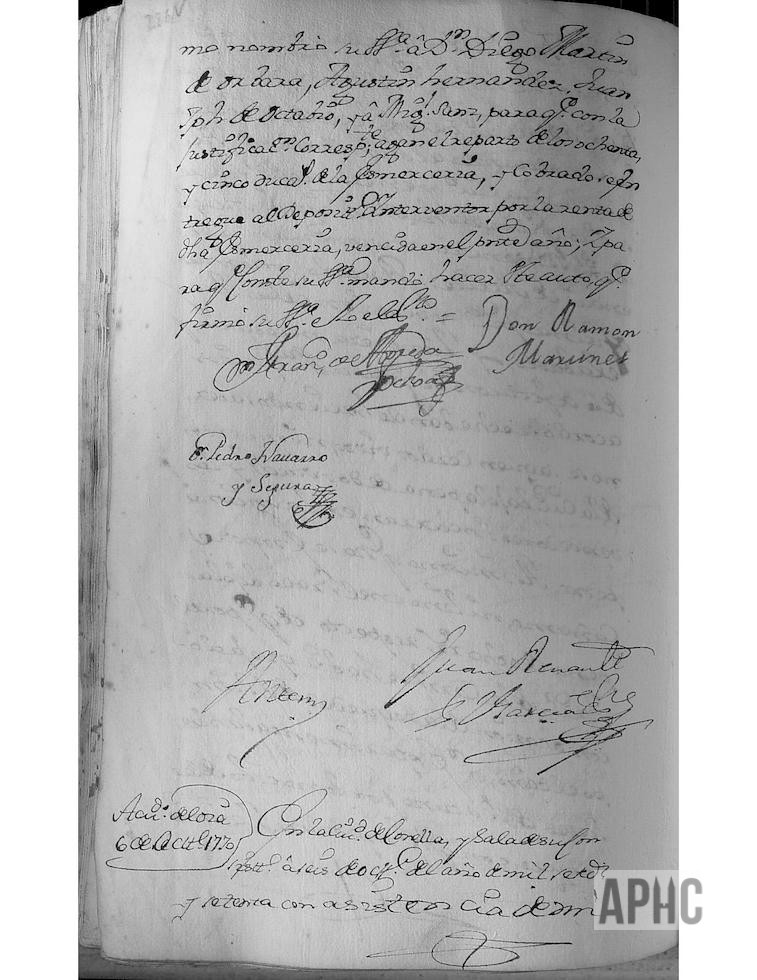 226 V
mo nombrò su Sª. à Dn. Diego Martin
de orbara, Agustin hernandez, Juan
Jph de Octabio, y â Migl. Sanz, para qe. con la
Justificacn. Corresp.te, agan el reparto de los ochenta,
y cinco ducas. de la Esmerceria, y Cobrado se en
tregue al Deposo. Interventor por la renta de
dha Esmerceria, vencida en el pnte año; Y pa
ra qe. Conste su Sª. mandò hacer este auto, qe.
firmò su Sª. =
Don Ramon
Martinez
Dn. Franco. de
Ochoa
Dn. Pedro Navarro
y Segura
Antemi
Juan Renault
y Garcia
Acdo. de ora
6 de Octte. 1770
En la Ciud. de Corella, y Sala de su Con
â seis de octe. del año de mil setzs.
y setenta con asistencia de mi
APHC